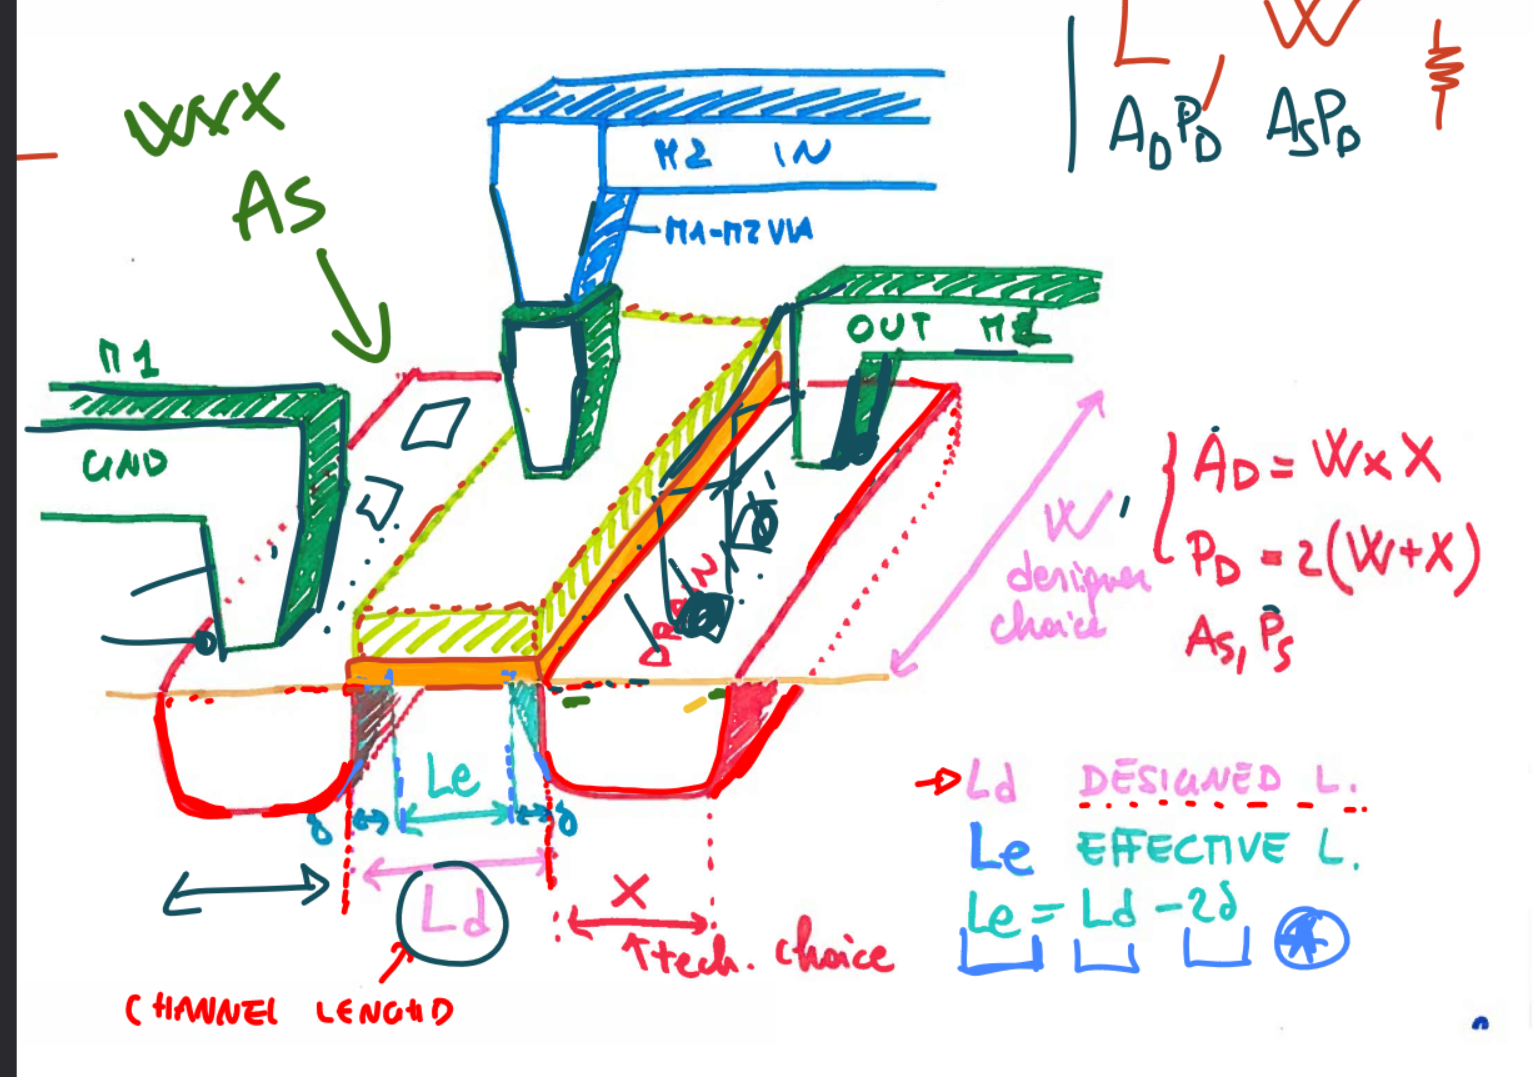 L W
AD PD AS PD
WxX
AS
M2 IN
M1-M2 VIA
M1
GND
OUT M1
DRAIN
W
designer
choice
AD = W x X
PD = 2(W+X)
As, Ps
Le
δ δ
Ld
X
tech. choice
CHANNEL LENGHD
Ld DESIGNED L.
Le EFFECTIVE L.
Le = Ld - 2δ